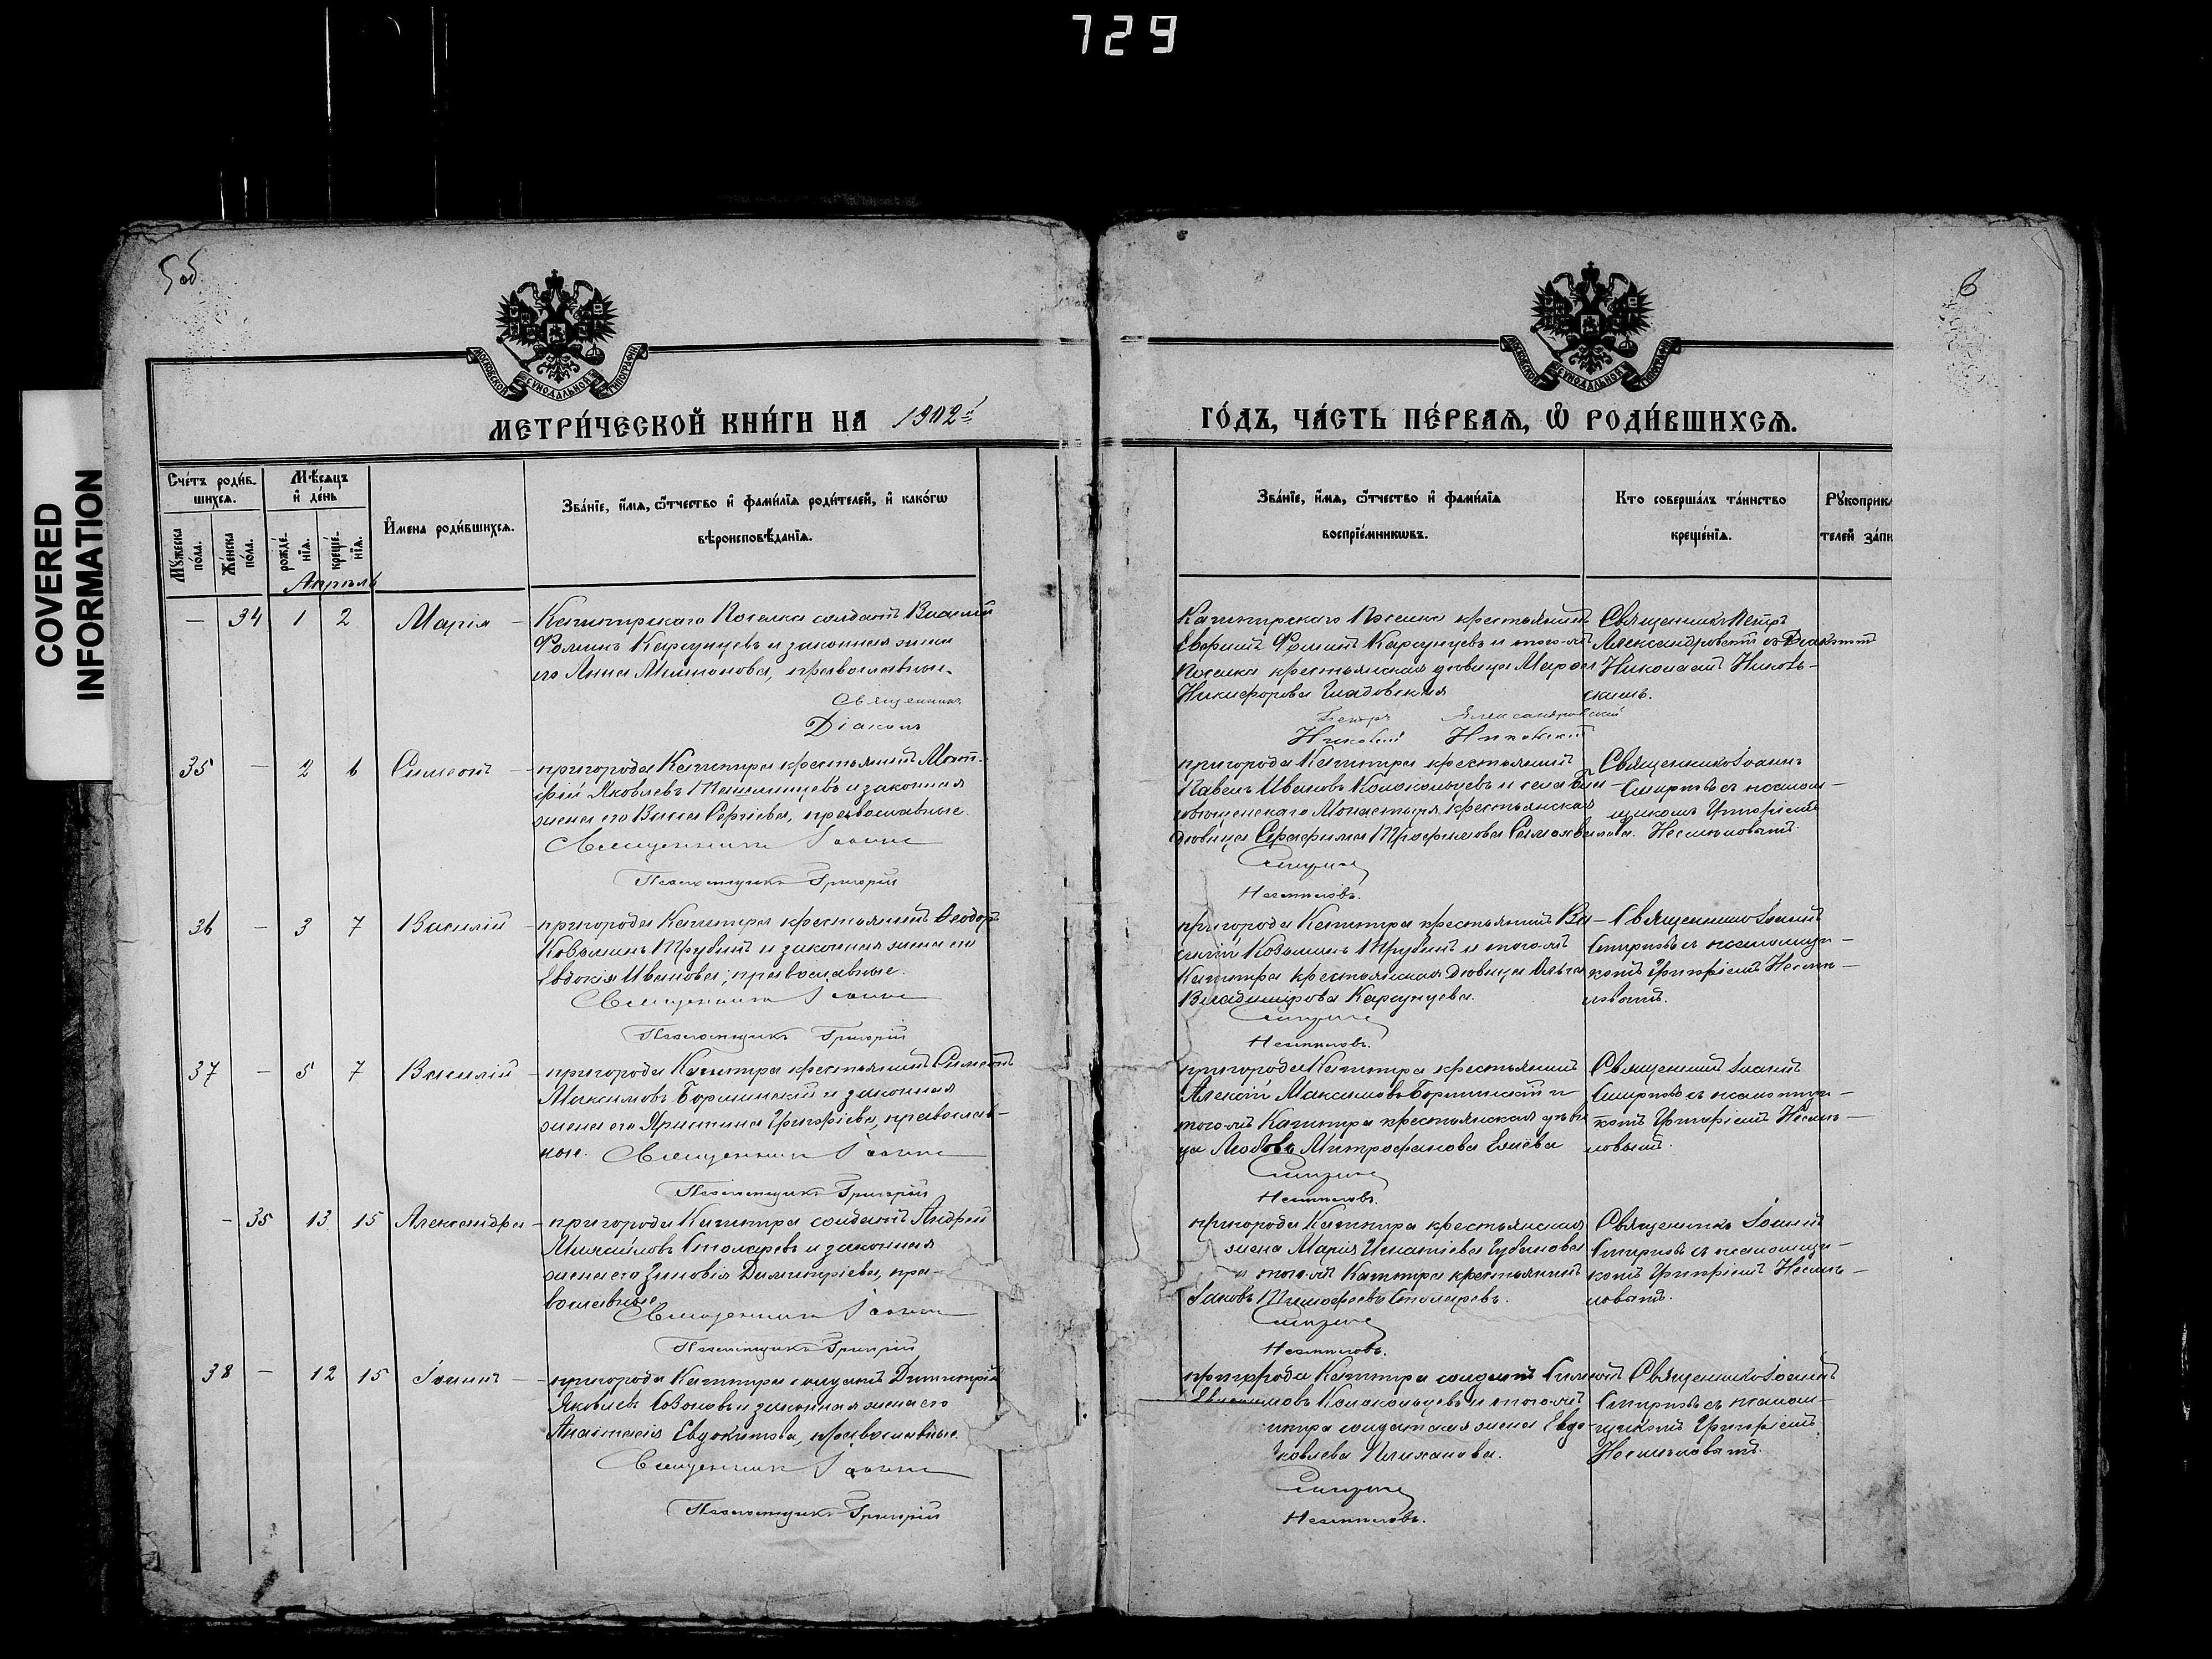 729
COVERED
INFORMATION
5об
6
МОСКОВСКОЙ СУНОДАЛЬНОЙ ТИПОГРАФІИ
МОСКОВСКОЙ СУНОДАЛЬНОЙ ТИПОГРАФІИ
МЕТРИ́ЧЕСКОЙ КНИ́ГИ НА 1902й
ГО́ДЪ, ЧА́СТЬ ПЕ́РВАЯ, Ѡ РОДИ́ВШИХСЯ.
Сче́тъ роди́в-
шихся.
Му́жеска
по́ла.
Же́нска
по́ла.
Мѣ́сяцъ
и де́нь
рожде́-
нія.
креще́-
нія.
Имена роди́вшихся.
Зва́ніе, и́мя, ѻ́тчество и фами́лія роди́телей, и како́гѡ
вѣроисповѣ́данія.
Зва́ніе, и́мя, ѻ́тчество и фами́лія
воспріе́мникѡвъ.
Кто соверша́лъ та́инство
креще́нія.
Рукоприкл
телей за́пи
Апрѣль
— 34 1 2 Марія
Кашпирскаго Поселка солдатъ Василій
Ѳоминъ Карсунцевъ и законная жена
его Анна Милионова, православные.
Священникъ
Діаконъ
Кашпирскаго Поселка крестьянинъ
Евфимій Ѳоминъ Карсунцевъ и того-же
Поселка крестьянская вдовица Марѳа
Никифорова Гладовская
Петръ Александровскій
Николай Никольскій
Священникъ Петръ
Александровскій съ Діакономъ
Николаемъ Николь-
скимъ.
35 — 2 6 Симеонъ
пригорода Кашпира крестьянинъ Мат-
фей Яковлевъ и законная
жена его Васса Сергіева, православные.
Священникъ Іоаннъ
Псаломщикъ Григорій
пригорода Кашпира крестьянинъ
Павелъ Ивановъ Колокольцевъ и села Бла-
говѣщенскаго Монастыря крестьянская
дѣвица Серафима Трофимова
Смирновъ
Несмѣловъ.
Священникъ Іоаннъ
Смирновъ съ псалом-
щикомъ Григоріемъ
Несмѣловымъ.
36 — 3 7 Василій
пригорода Кашпира крестьянинъ Ѳеодоръ
Козьминъ Трубинъ и законная жена его
Евдокія Иванова, православные.
Священникъ Іоаннъ
Псаломщикъ Григорій
пригорода Кашпира крестьянинъ Ва-
силій Козьминъ Трубинъ и того-же
Кашпира крестьянская дѣвица Ольга
Владимірова Карсунцева.
Смирновъ
Несмѣловъ.
Священникъ Іоаннъ
Смирновъ съ псаломщи-
комъ Григоріемъ Несмѣ-
ловымъ.
37 — 5 7 Василій
пригорода Кашпира крестьянинъ Симеонъ
Максимовъ Борминскій и законная
жена его Христина Григоріева, православ-
ные. Священникъ Іоаннъ
Псаломщикъ Григорій
пригорода Кашпира крестьянинъ
Алексій Максимовъ Борминскій и
того-же Кашпира крестьянская дѣви-
ца Любовь Митрофанова Елиева
Смирновъ
Несмѣловъ.
Священникъ Іоаннъ
Смирновъ съ псаломщи-
комъ Григоріемъ Несмѣ-
ловымъ.
— 35 13 15 Александра
пригорода Кашпира солдатъ Андрей
Михайловъ Столяревъ и законная
жена его Зиновія Димитріева, пра-
вославные
Священникъ Іоаннъ
Псаломщикъ Григорій
пригорода Кашпира крестьянская
жена Марія Игнатіева Губанова
и того-же Кашпира крестьянинъ
Іаковъ Тимофеевъ Столяревъ.
Смирновъ
Несмѣловъ.
Священникъ Іоаннъ
Смирновъ съ псаломщи-
комъ Григоріемъ Несмѣ-
ловымъ.
38 — 12 15 Іоаннъ
пригорода Кашпира солдатъ Димитрій
Яковлевъ Созоновъ и законная жена его
Анастасія Евдокимова, православные.
Священникъ Іоаннъ
Псаломщикъ Григорій
пригорода Кашпира солдатъ Симеонъ
Колокольцевъ и того-же
шпира солдатская жена Евдо-
Яковлева Плиханова.
Смирновъ
Несмѣловъ.
Священникъ Іоаннъ
Смирновъ съ псалом-
щикомъ Григоріемъ
Несмѣловымъ.